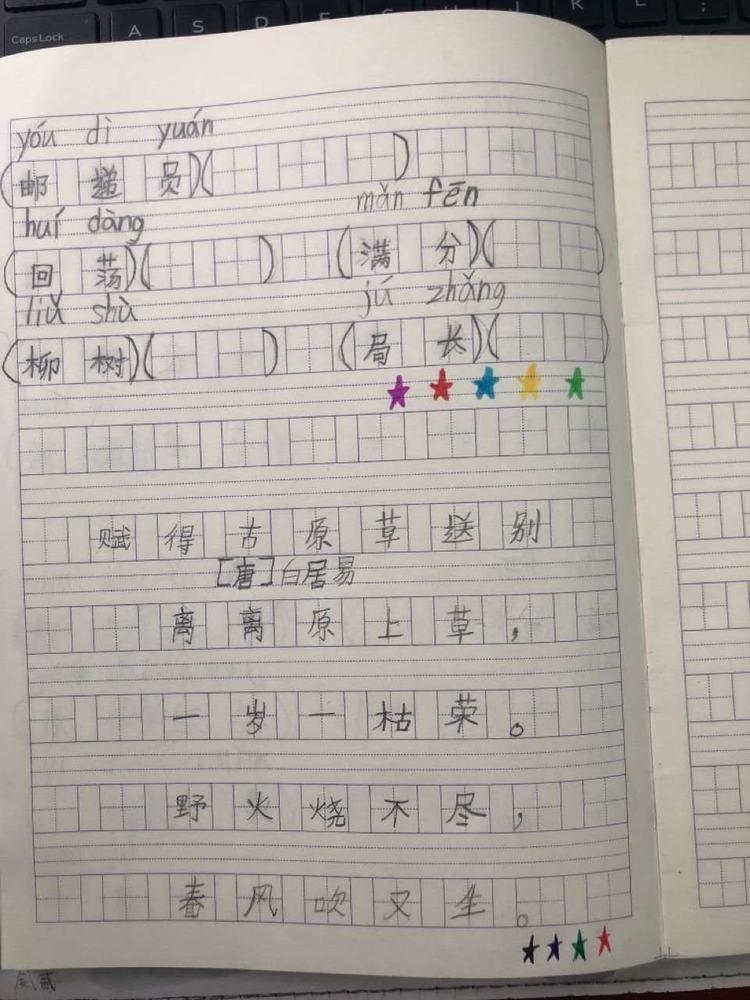 Caps Lock A S D F G H J K L ;
yóu dì yuán
(邮递员)( )
mǎn fēn
huí dàng
(回荡)( ) (满分)( )
liǔ shù jú zhǎng
(柳树)( ) (局长)( )
赋得古原草送别
[唐]白居易
离离原上草，
一岁一枯荣。
野火烧不尽，
春风吹又生。